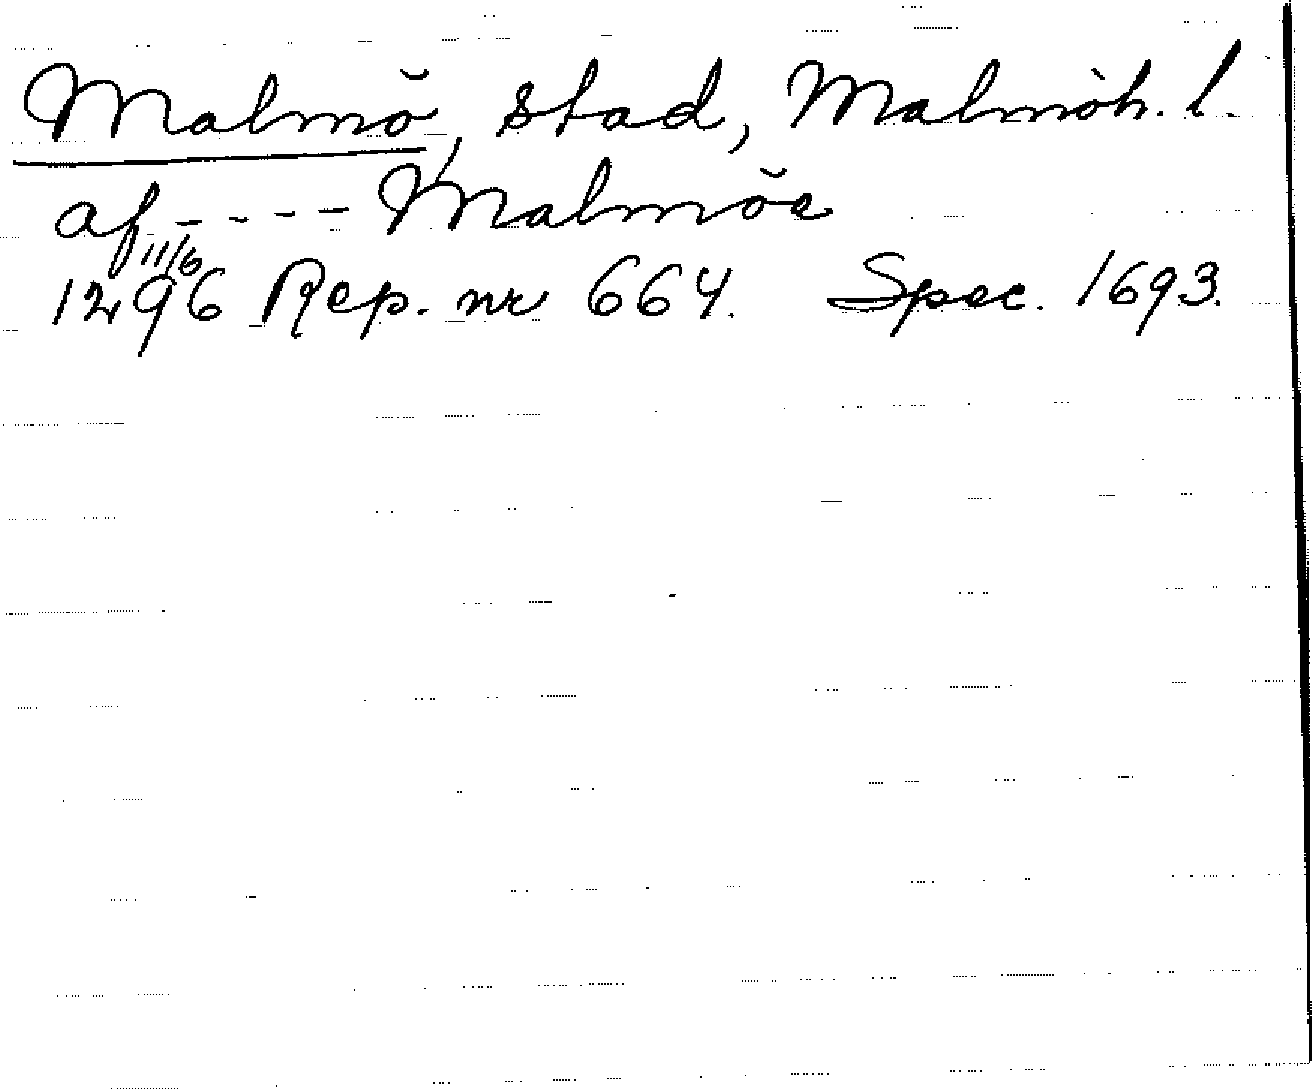 Malmö, stad, Malmöh. l.
af - - - - Malmöe
11/6
1496 Rep. nr 664. Spec. 1693.